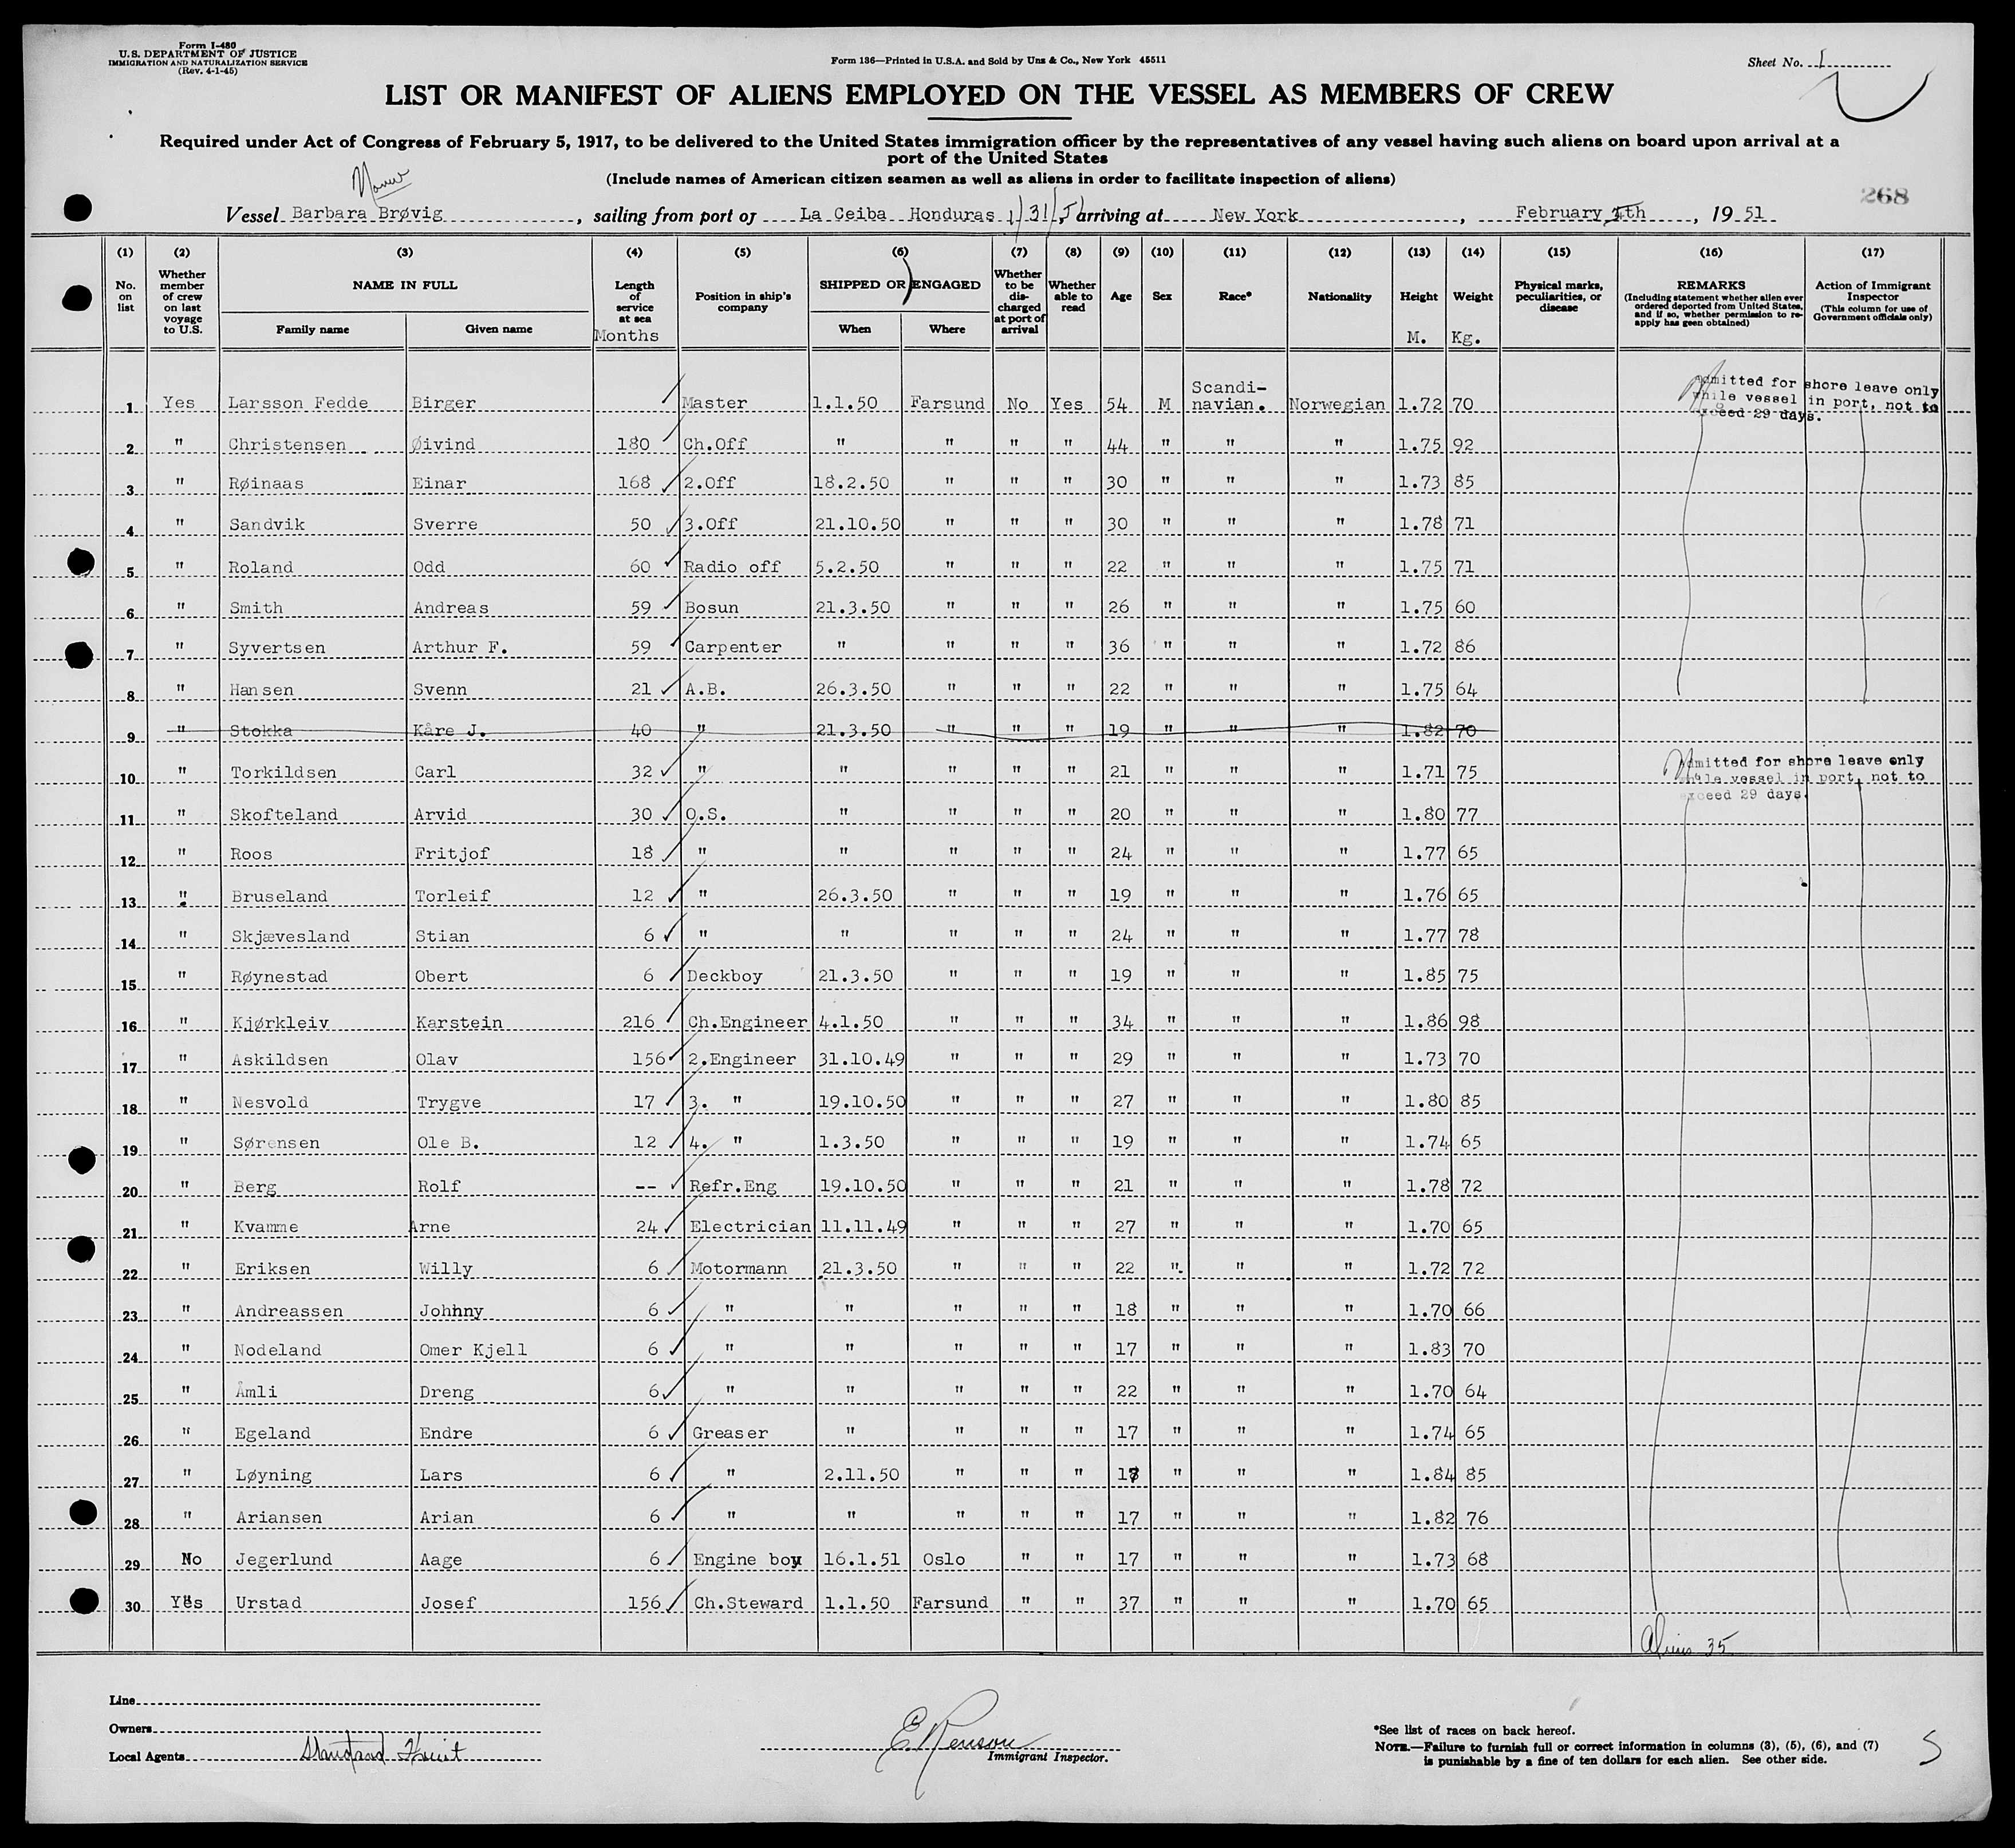 Form I-480
U.S. DEPARTMENT OF JUSTICE
IMMIGRATION AND NATURALIZATION SERVICE
(Rev. 4-1-45)
Form 136—Printed in U.S.A. and Sold by Unz & Co., New York 45511
Sheet No. 1
LIST OR MANIFEST OF ALIENS EMPLOYED ON THE VESSEL AS MEMBERS OF CREW
Required under Act of Congress of February 5, 1917, to be delivered to the United States immigration officer by the representatives of any vessel having such aliens on board upon arrival at a
port of the United States
(Include names of American citizen seamen as well as aliens in order to facilitate inspection of aliens)
268
Vessel Barbara Brøvig, sailing from port of La Ceiba Honduras 1/31/51, arriving at New York, February 4th, 1951
(1) (2) (3) (4) (5) (6) (7) (8) (9) (10) (11) (12) (13) (14) (15) (16) (17)
No. on list
Whether member of crew on last voyage to U.S.
NAME IN FULL
Family name Given name
Length of service at sea
Months
Position in ship's company
SHIPPED OR ENGAGED
When Where
Whether to be discharged at port of arrival
Whether able to read
Age Sex Race* Nationality Height Weight
M. Kg.
Physical marks, peculiarities, or disease
REMARKS
(Including statement whether alien ever ordered deported from United States, and if so, whether permission to reapply has geen obtained)
Action of Immigrant Inspector
(This column for use of Government officials only)
Admitted for shore leave only
while vessel in port, not to
exceed 29 days.
1 Yes Larsson Fedde Birger Master 1.1.50 Farsund No Yes 54 M Scandinavian. Norwegian 1.72 70
2 " Christensen Øivind 180 Ch.Off " " " " 44 " " " 1.75 92
3 " Røinaas Einar 168 2.Off 18.2.50 " " " 30 " " " 1.73 85
4 " Sandvik Sverre 50 3.Off 21.10.50 " " " 30 " " " 1.78 71
5 " Roland Odd 60 Radio off 5.2.50 " " " 22 " " " 1.75 71
6 " Smith Andreas 59 Bosun 21.3.50 " " " 26 " " " 1.75 60
7 " Syvertsen Arthur F. 59 Carpenter " " " " 36 " " " 1.72 86
8 " Hansen Svenn 21 A.B. 26.3.50 " " " 22 " " " 1.75 64
9 " Stokka Kåre J. 40 " 21.3.50 " " " 19 " " " 1.82 70
10 " Torkildsen Carl 32 " " " " " 21 " " " 1.71 75
Admitted for shore leave only
while vessel in port, not to
exceed 29 days.
11 " Skofteland Arvid 30 O.S. " " " " 20 " " " 1.80 77
12 " Roos Fritjof 18 " " " " " 24 " " " 1.77 65
13 " Bruseland Torleif 12 " 26.3.50 " " " 19 " " " 1.76 65
14 " Skjævesland Stian 6 " " " " " 24 " " " 1.77 78
15 " Røynestad Obert 6 Deckboy 21.3.50 " " " 19 " " " 1.85 75
16 " Kjørkleiv Karstein 216 Ch.Engineer 4.1.50 " " " 34 " " " 1.86 98
17 " Askildsen Olav 156 2.Engineer 31.10.49 " " " 29 " " " 1.73 70
18 " Nesvold Trygve 17 3. " 19.10.50 " " " 27 " " " 1.80 85
19 " Sørensen Ole B. 12 4. " 1.3.50 " " " 19 " " " 1.74 65
20 " Berg Rolf -- Refr.Eng 19.10.50 " " " 21 " " " 1.78 72
21 " Kvamme Arne 24 Electrician 11.11.49 " " " 27 " " " 1.70 65
22 " Eriksen Willy 6 Motormann 21.3.50 " " " 22 " " " 1.72 72
23 " Andreassen Johhny 6 " " " " " 18 " " " 1.70 66
24 " Nodeland Omer Kjell 6 " " " " " 17 " " " 1.83 70
25 " Åmli Dreng 6 " " " " " 22 " " " 1.70 64
26 " Egeland Endre 6 Greaser " " " " 17 " " " 1.74 65
27 " Løyning Lars 6 " 2.11.50 " " " " " " 1.84 85
28 " Ariansen Arian 6 " " " " " 17 " " " 1.82 76
29 No Jegerlund Aage 6 Engine boy 16.1.51 Oslo " " 17 " " " 1.73 68
30 Yes Urstad Josef 156 Ch.Steward 1.1.50 Farsund " " 37 " " " 1.70 65
Aliens 35
Line
Owners
Local Agents Standard Fruit
Immigrant Inspector.
*See list of races on back hereof.
NOTE.—Failure to furnish full or correct information in columns (3), (5), (6), and (7)
is punishable by a fine of ten dollars for each alien. See other side.